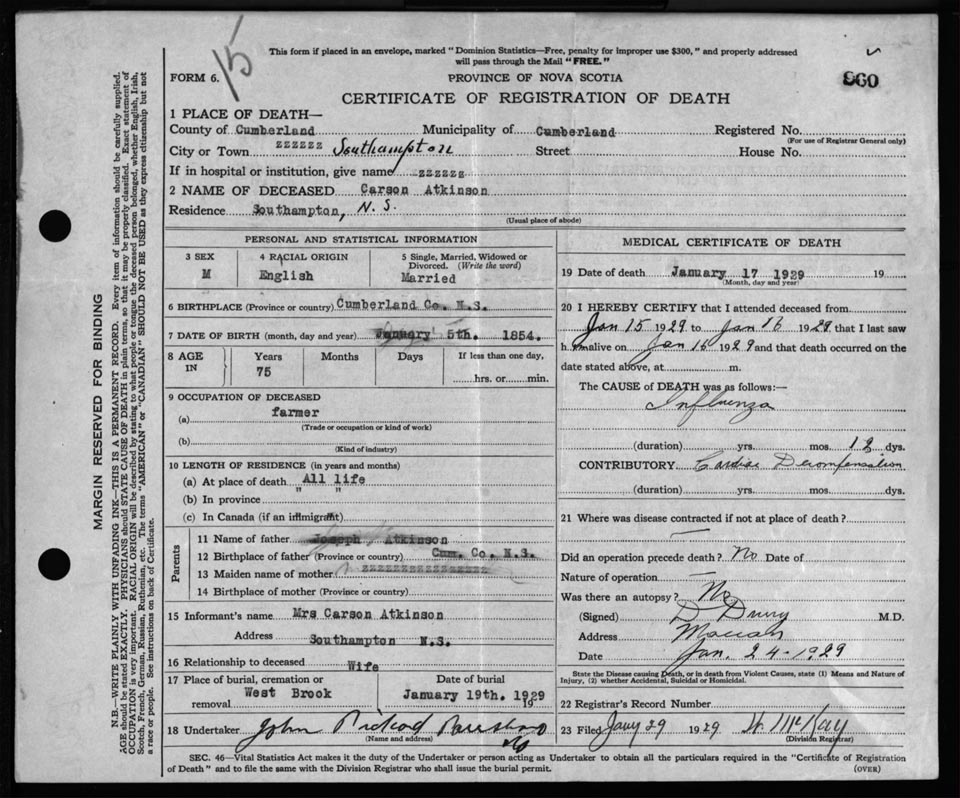 15
This form if placed in an envelope, marked "Dominion Statistics—Free, penalty for improper use $300," and properly addressed
will pass through the Mail "FREE."
860
FORM 6.
PROVINCE OF NOVA SCOTIA
CERTIFICATE OF REGISTRATION OF DEATH
1 PLACE OF DEATH—
County of Cumberland Municipality of Cumberland Registered No.
(For use of Registrar General only)
City or Town zzzzzz Southampton Street House No.
If in hospital or institution, give name zzzzzz
2 NAME OF DECEASED Carson Atkinson
Residence Southampton, N.S.
(Usual place of abode)
PERSONAL AND STATISTICAL INFORMATION
3 SEX 4 RACIAL ORIGIN 5 Single, Married, Widowed or
Divorced. (Write the word)
M English Married
6 BIRTHPLACE (Province or country) Cumberland Co. N.S.
7 DATE OF BIRTH (month, day and year) January 5th. 1854.
8 AGE IN Years Months Days If less than one day,
75
hrs. or min.
9 OCCUPATION OF DECEASED
(a) farmer
(Trade or occupation or kind of work)
(b)
(Kind of industry)
10 LENGTH OF RESIDENCE (in years and months)
(a) At place of death All life
(b) In province " "
(c) In Canada (if an immigrant)
Parents
11 Name of father Joseph Atkinson
12 Birthplace of father (Province or country) Cum. Co. N.S.
13 Maiden name of mother zzzzzzzzzzzzzzzzz
14 Birthplace of mother (Province or country)
15 Informant's name Mrs Carson Atkinson
Address Southampton N.S.
16 Relationship to deceased Wife
17 Place of burial, cremation or Date of burial
removal West Brook January 19th. 1929
19
18 Undertaker John
(Name and address)
MEDICAL CERTIFICATE OF DEATH
19 Date of death January 17 1929 19
(Month, day and year)
20 I HEREBY CERTIFY that I attended deceased from
Jan 15 1929 to Jan 16 1929, that I last saw
him alive on Jan 16 1929 and that death occurred on the
date stated above, at m.
The CAUSE of DEATH was as follows:—
Influenza
(duration) yrs. mos 12 dys.
CONTRIBUTORY Cardiac Decompensation
(duration) yrs. mos. dys.
21 Where was disease contracted if not at place of death?
—
Did an operation precede death? No Date of
Nature of operation —
Was there an autopsy? No
(Signed) D Drury M.D.
Address Maccan
Date Jan. 24-1929
State the Disease causing Death, or in death from Violent Causes, state (1) Means and Nature of
Injury, (2) whether Accidental, Suicidal or Homicidal.
22 Registrar's Record Number
23 Filed Jany 29 1929 McKay
(Division Registrar)
SEC. 46—Vital Statistics Act makes it the duty of the Undertaker or person acting as Undertaker to obtain all the particulars required in the "Certificate of Registration
of Death" and to file the same with the Division Registrar who shall issue the burial permit.
(OVER)
MARGIN RESERVED FOR BINDING
N.B.—WRITE PLAINLY WITH UNFADING INK—THIS IS A PERMANENT RECORD. Every item of information should be carefully supplied.
AGE should be stated EXACTLY. PHYSICIANS should STATE CAUSE OF DEATH in plain terms, so that it may be properly classified. Exact statement of
OCCUPATION is very important. RACIAL ORIGIN will be described by stating to what people or tongue the deceased person belonged, whether English, Irish,
Scotch, French, German, Russian, Ruthenian, etc. The terms "AMERICAN" or "CANADIAN" SHOULD NOT BE USED as they express citizenship but not
a race or people. See instructions on back of Certificate.